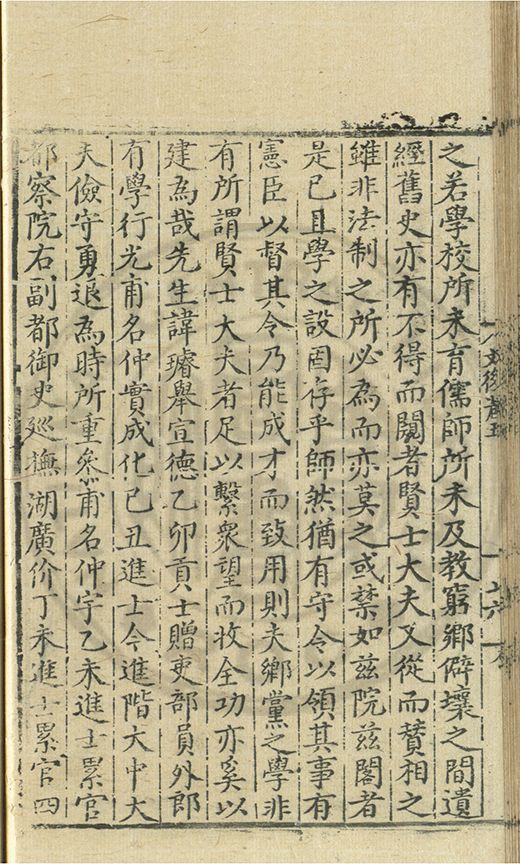 之若學校所未育儒師所未及教窮鄉僻壤之間遺
經舊史亦有不得而闕者賢士大夫又從而賛相之
雖非法制之所必為而亦莫之或禁如兹院兹閣者
是已且學之設固存乎師然猶有守令以領其事有
憲臣以督其令乃能成才而致用則夫鄉黨之學非
有所謂賢士大夫者足以繫衆望而收全功亦奚以
建為哉先生諱璿舉宣德乙卯貢士贈吏部員外郎
有學行光甫名仲實成化己丑進士今進階大中大
夫儉守勇退為時所重叅甫名仲宇乙未進士累官
都察院右副都御史巡撫湖廣价丁未進士累官四